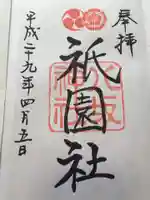 奉拝
祇園社
平成二十九年四月五日